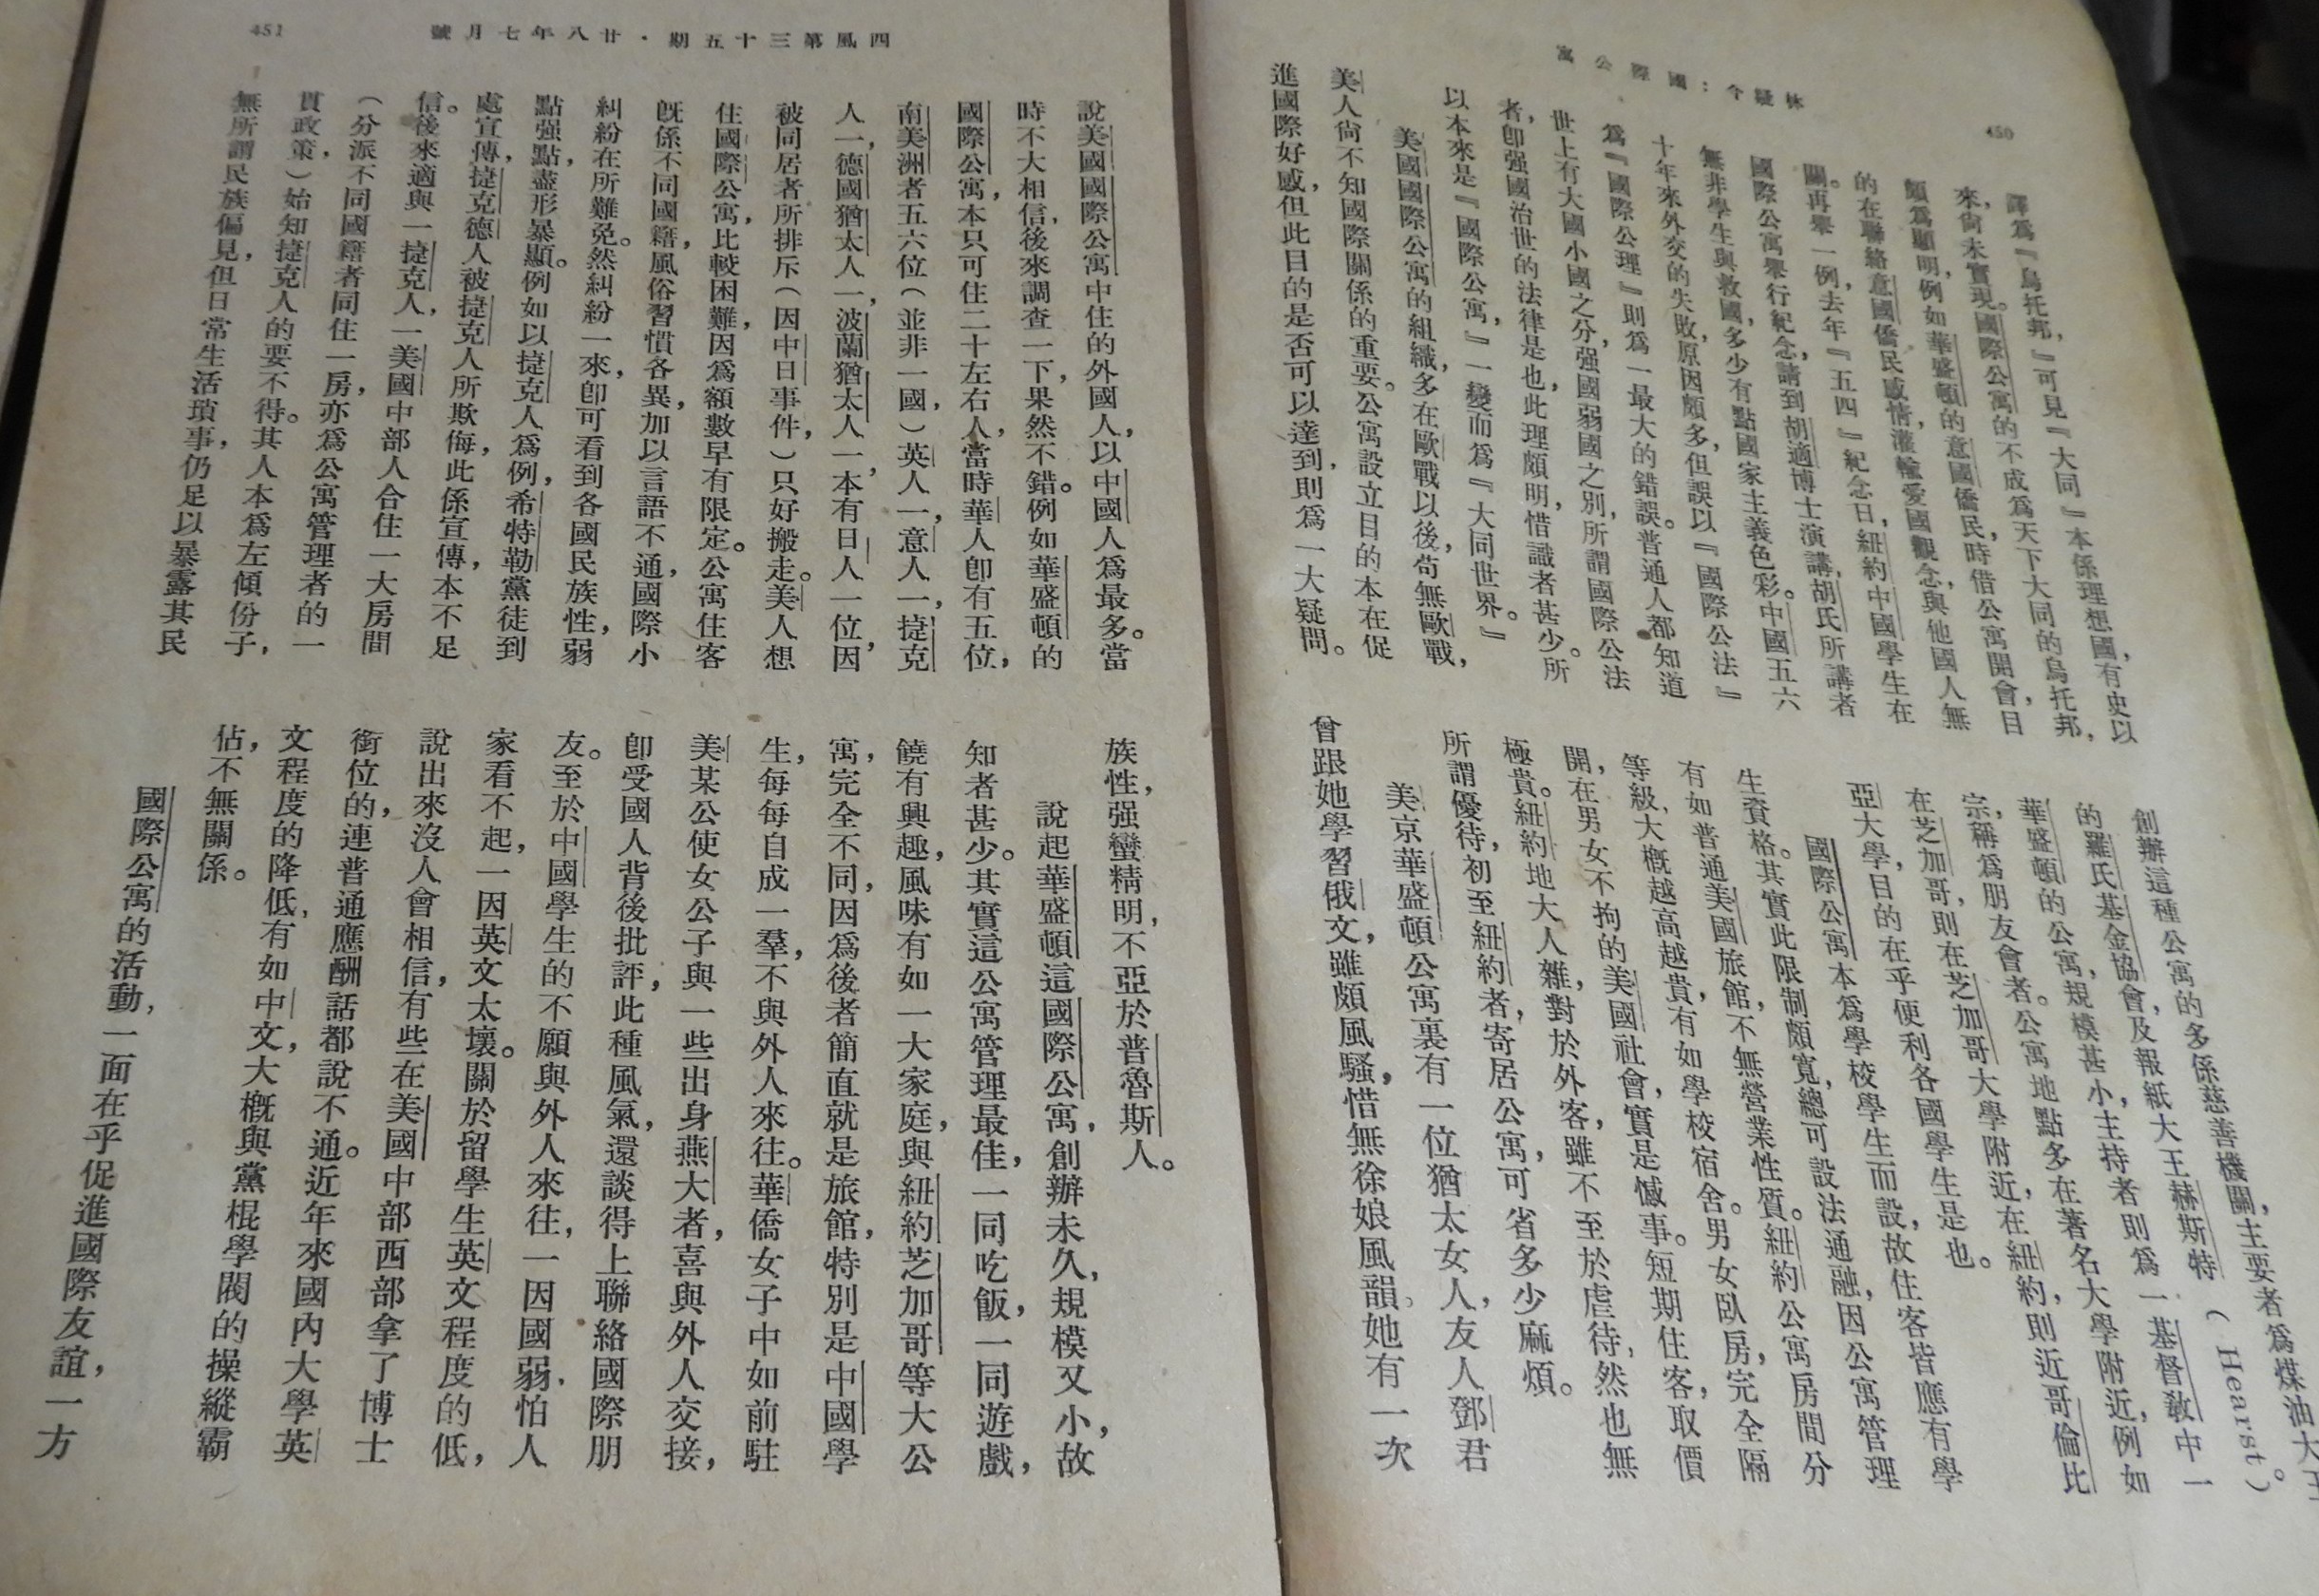 林疑今：國際公寓
450
譯爲『烏托邦，』可見『大同』本係理想國，有史以
來，尙未實現。國際公寓的不成爲天下大同的烏托邦，
頗爲顯明，例如華盛頓的意國僑民，時借公寓開會，目
的在聯絡意國僑民感情，灌輸愛國觀念，與他國人無
關。再舉一例，去年『五四』紀念日，紐約中國學生在
國際公寓舉行紀念，請到胡適博士演講，胡氏所講者
無非學生與救國，多少有點國家主義色彩。中國五六
十年來外交的失敗，原因頗多，但誤以『國際公法』
爲『國際公理』則爲一最大的錯誤。普通人都知道
世上有大國小國之分，强國弱國之別，所謂國際公法
者，卽强國治世的法律是也，此理頗明，惜識者甚少。所
以本來是『國際公寓，』一變而爲『大同世界。』
美國國際公寓的組織，多在歐戰以後，苟無歐戰，
美人尙不知國際關係的重要。公寓設立目的本在促
進國際好感，但此目的是否可以達到，則爲一大疑問。
創辦這種公寓的多係慈善機關，主要者爲煤油大王
的羅氏基金協會，及報紙大王赫斯特（Hearst）。
華盛頓的公寓，規模甚小，主持者則爲一基督敎中一
宗，稱爲朋友會者。公寓地點多在著名大學附近，例如
在芝加哥，則在芝加哥大學附近，在紐約，則近哥倫比
亞大學，目的在乎便利各國學生是也。
國際公寓本爲學校學生而設，故住客皆應有學
生資格。其實此限制頗寬，總可設法通融，因公寓管理
有如普通美國旅館，不無營業性質。紐約公寓房間分
等級，大槪越高越貴，有如學校宿舍。男女臥房，完全隔
開，在男女不拘的美國社會，實是憾事。短期住客，取價
極貴。紐約地大人雜，對於外客，雖不至於虐待，然也無
所謂優待，初至紐約者，寄居公寓，可省多少麻煩。
美京華盛頓公寓裏有一位猶太女人，友人鄧君
曾跟她學習俄文，雖頗風騷，惜無徐娘風韻。她有一次
四風第三十五期・廿八年七月號
451
說美國國際公寓中住的外國人，以中國人爲最多。當
時不大相信，後來調查一下，果然不錯。例如華盛頓的
國際公寓，本只可住二十左右人，當時華人卽有五位，
南美洲者五六位（並非一國，）英人一，意人一，捷克
人一，德國猶太人一，波蘭猶太人一，本有日人一位，因
被同居者所排斥（因中日事件，）只好搬走。美人想
住國際公寓，比較困難，因爲額數早有限定。公寓住客
旣係不同國籍，風俗習慣各異，加以言語不通，國際小
糾紛在所難免。然糾紛一來，卽可看到各國民族性，弱
點强點，盡形暴顯。例如以捷克人爲例，希特勒黨徒到
處宣傳，捷克德人被捷克人所欺侮，此係宣傳，本不足
信。後來適與一捷克人，一美國中部人合住一大房間
（分派不同國籍者同住一房，亦爲公寓管理者的一
貫政策，）始知捷克人的要不得。其人本爲左傾份子，
無所謂民族偏見，但日常生活瑣事，仍足以暴露其民
族性，强蠻精明，不亞於普魯斯人。
說起華盛頓這國際公寓，創辦未久，規模又小，故
知者甚少。其實這公寓管理最佳，一同吃飯，一同遊戲，
饒有興趣，風味有如一大家庭，與紐約芝加哥等大公
寓，完全不同，因爲後者簡直就是旅館，特別是中國學
生，每每自成一羣，不與外人來往。華僑女子中如前駐
美某公使女公子與一些出身燕大者，喜與外人交接，
卽受國人背後批評，此種風氣，還談得上聯絡國際朋
友。至於中國學生的不願與外人來往，一因國弱，怕人
家看不起，一因英文太壞。關於留學生英文程度的低，
說出來沒人會相信，有些在美國中部西部拿了博士
銜位的，連普通應酬話都說不通。近年來國內大學英
文程度的降低，有如中文，大槪與黨棍學閥的操縱霸
佔，不無關係。
國際公寓的活動，一面在乎促進國際友誼，一方